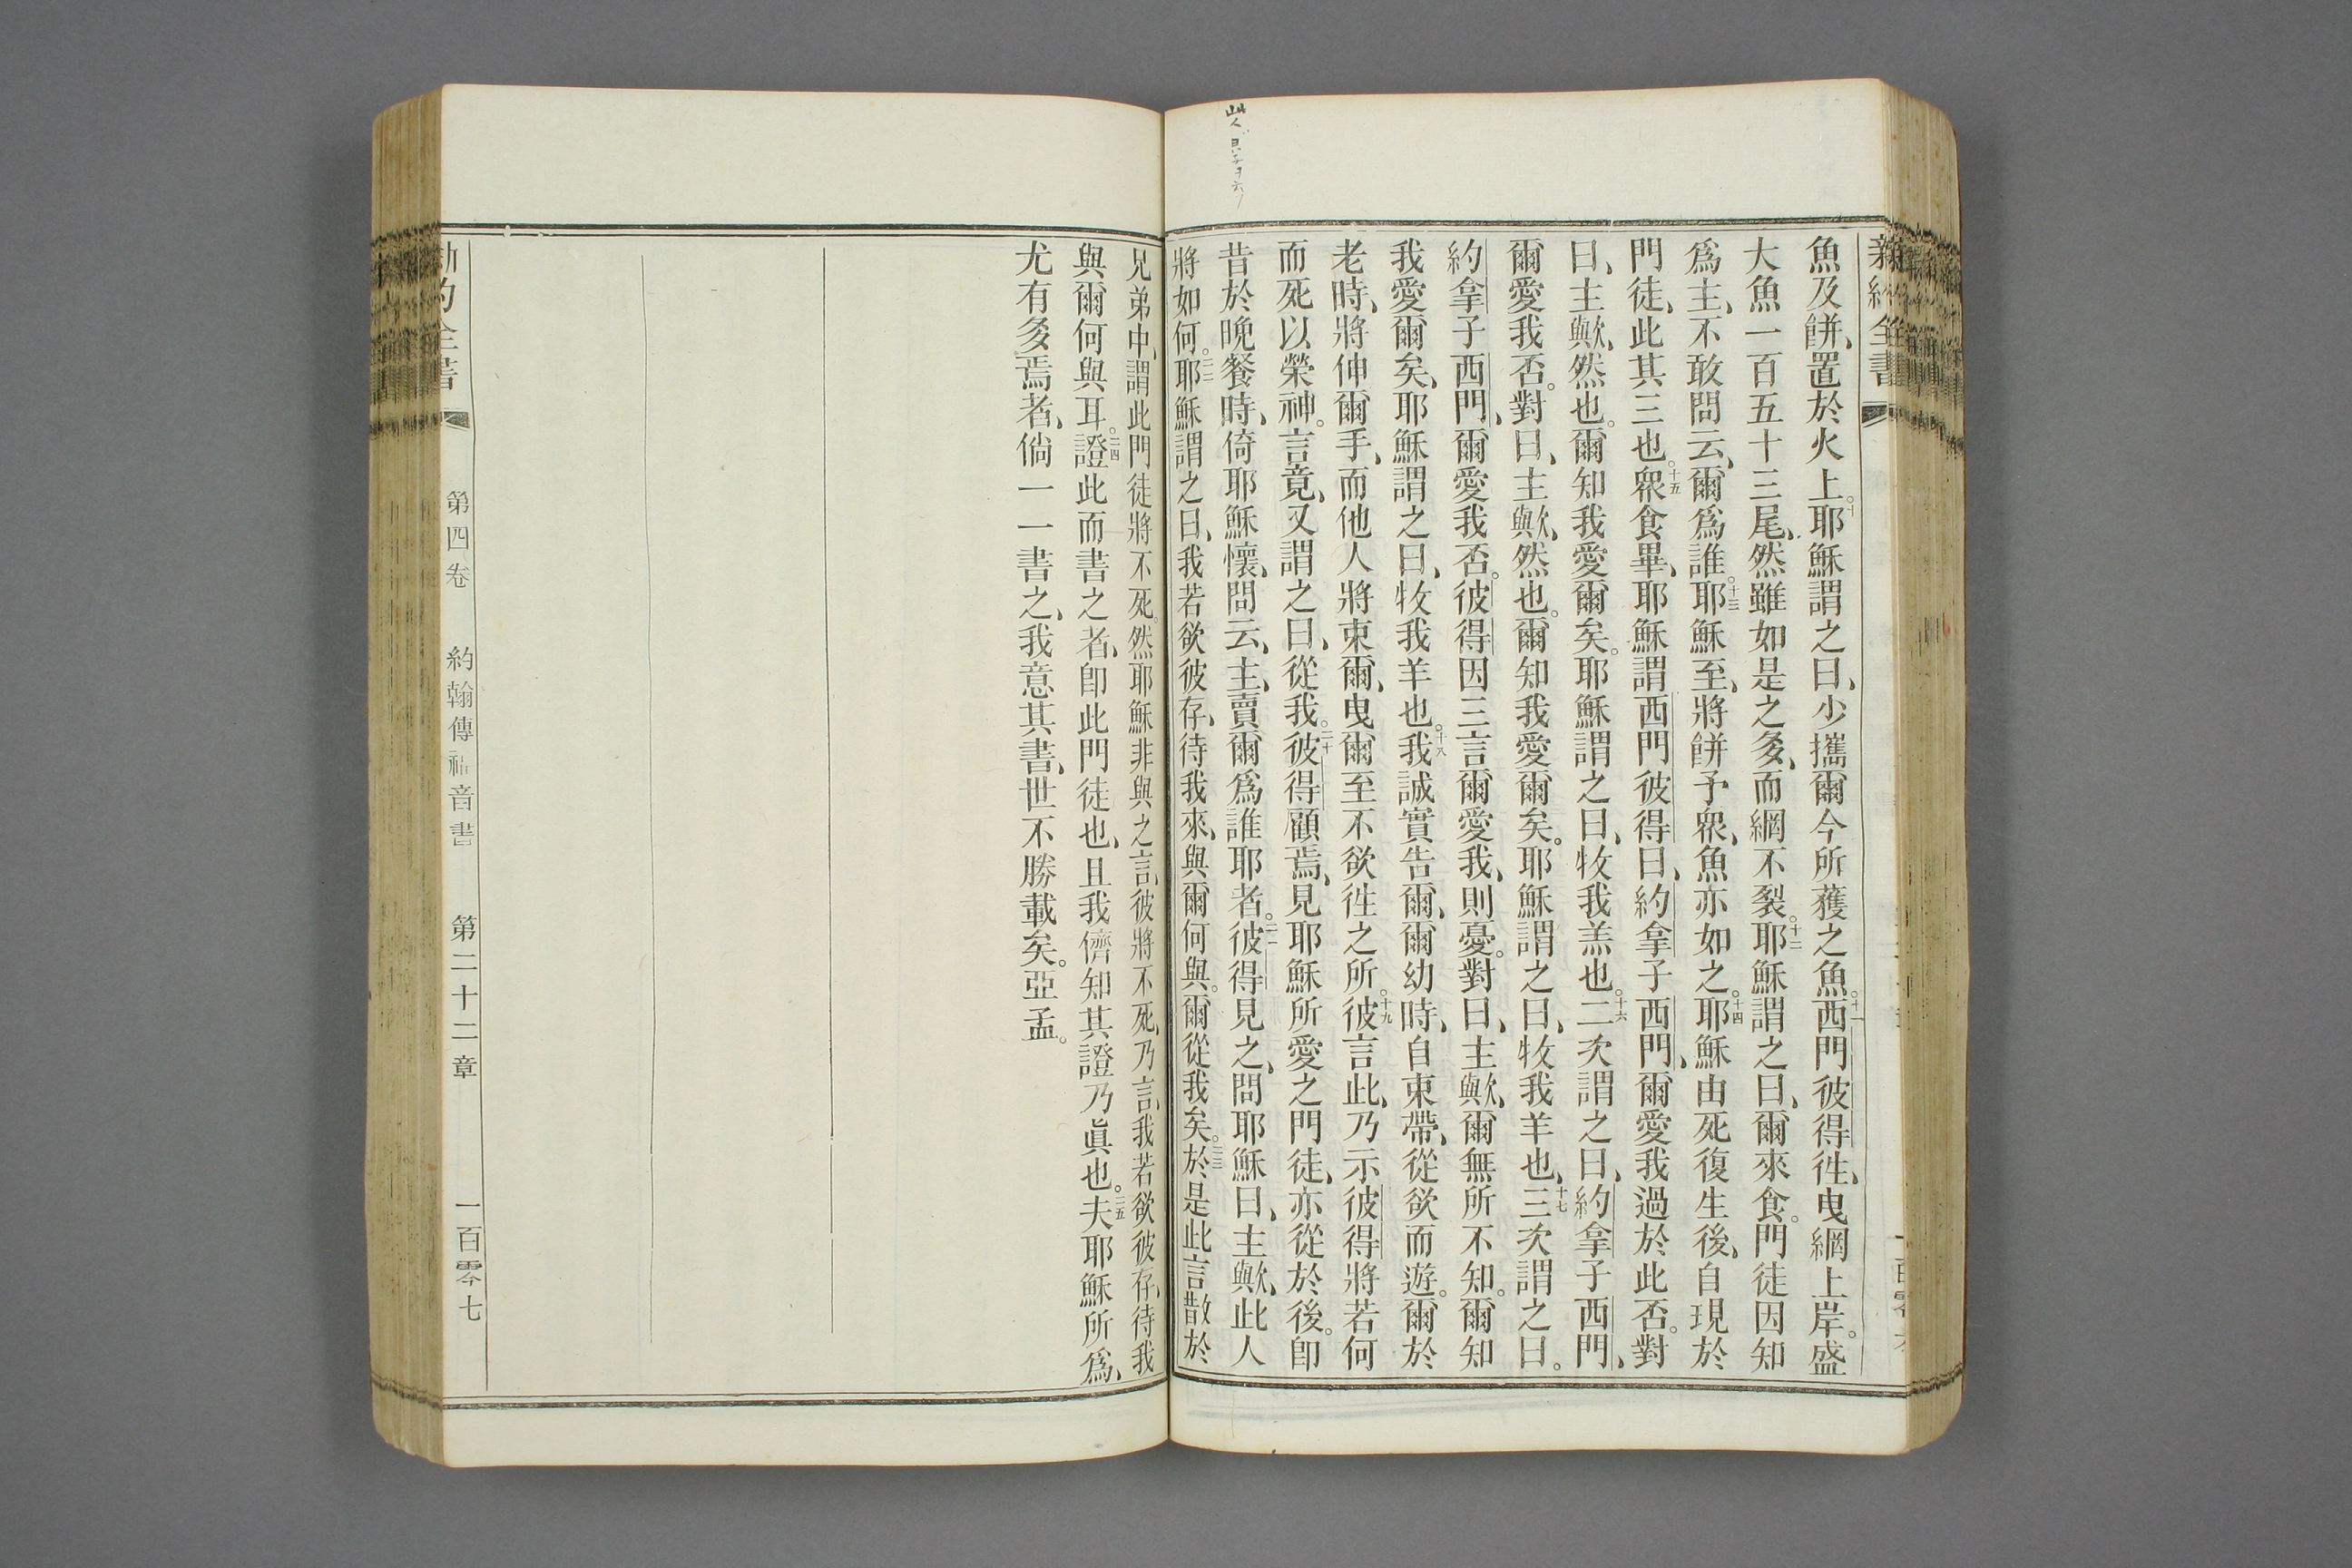 新約全書
魚及餅、置於火上。十耶穌謂之曰、少攜爾今所獲之魚。十一西門彼得往、曳網上岸。盛
大魚一百五十三尾、然雖如是之多、而網不裂。十二耶穌謂之曰、爾來食。門徒因知
爲主、不敢問云、爾爲誰。十三耶穌至、將餅予衆、魚亦如之。十四耶穌由死復生後、自現於
門徒、此其三也。十五衆食畢、耶穌謂西門彼得曰、約拿子西門、爾愛我過於此否。對
曰、主歟、然也。爾知我愛爾矣。耶穌謂之曰、牧我羔也。十六二次謂之曰、約拿子西門、
爾愛我否。對曰、主歟、然也。爾知我愛爾矣。耶穌謂之曰、牧我羊也、十七三次謂之曰。
約拿子西門、爾愛我否。彼得因三言爾愛我、則憂。對曰、主歟、爾無所不知。爾知
我愛爾矣、耶穌謂之曰、牧我羊也。十八我誠實告爾、爾幼時、自束帶、從欲而遊。爾於
老時、將伸爾手、而他人將束爾、曳爾至不欲往之所。十九彼言此、乃示彼得將若何
而死以榮神。言竟、又謂之曰、從我。二十彼得顧焉、見耶穌所愛之門徒、亦從於後。卽
昔於晚餐時、倚耶穌懷、問云、主、賣爾爲誰耶者。二一彼得見之、問耶穌曰、主歟、此人
將如何。二二耶穌謂之曰、我若欲彼存、待我來、與爾何與。爾從我矣。二三於是此言散於
兄弟中、謂此門徒將不死。然耶穌非與之言、彼將不死、乃言、我若欲彼存、待我
與爾何與耳。二四證此而書之者、卽此門徒也、且我儕知其證乃眞也。二五夫耶穌所爲、
尤有多焉者、倘一一書之、我意其書、世不勝載矣。亞孟。
約全書 第四卷 約翰傳福音書 第二十二章 一百零七